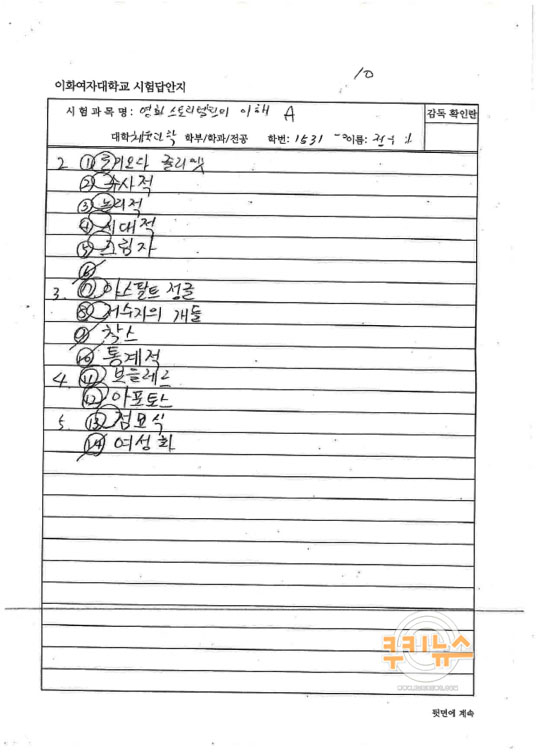 10
이화여자대학교 시험답안지
시험과목명: 영화스토리텔링의 이해 A
감독 확인란
대학 체육과학 학부/학과/전공 학번: 1531 이름:
2 ① 줄리엣
② 수사적
③ 논리적
④ 시대적
⑤ 그림자
⑥
3. ⑦ 아스팔트 정글
⑧ 저수지의 개들
⑨ 착스
⑩ 통계적
4 ⑪ 보들레르
⑫ 아포토스
5 ⑬ 점묘식
⑭ 여성화
쿠키뉴스
뒷면에 계속